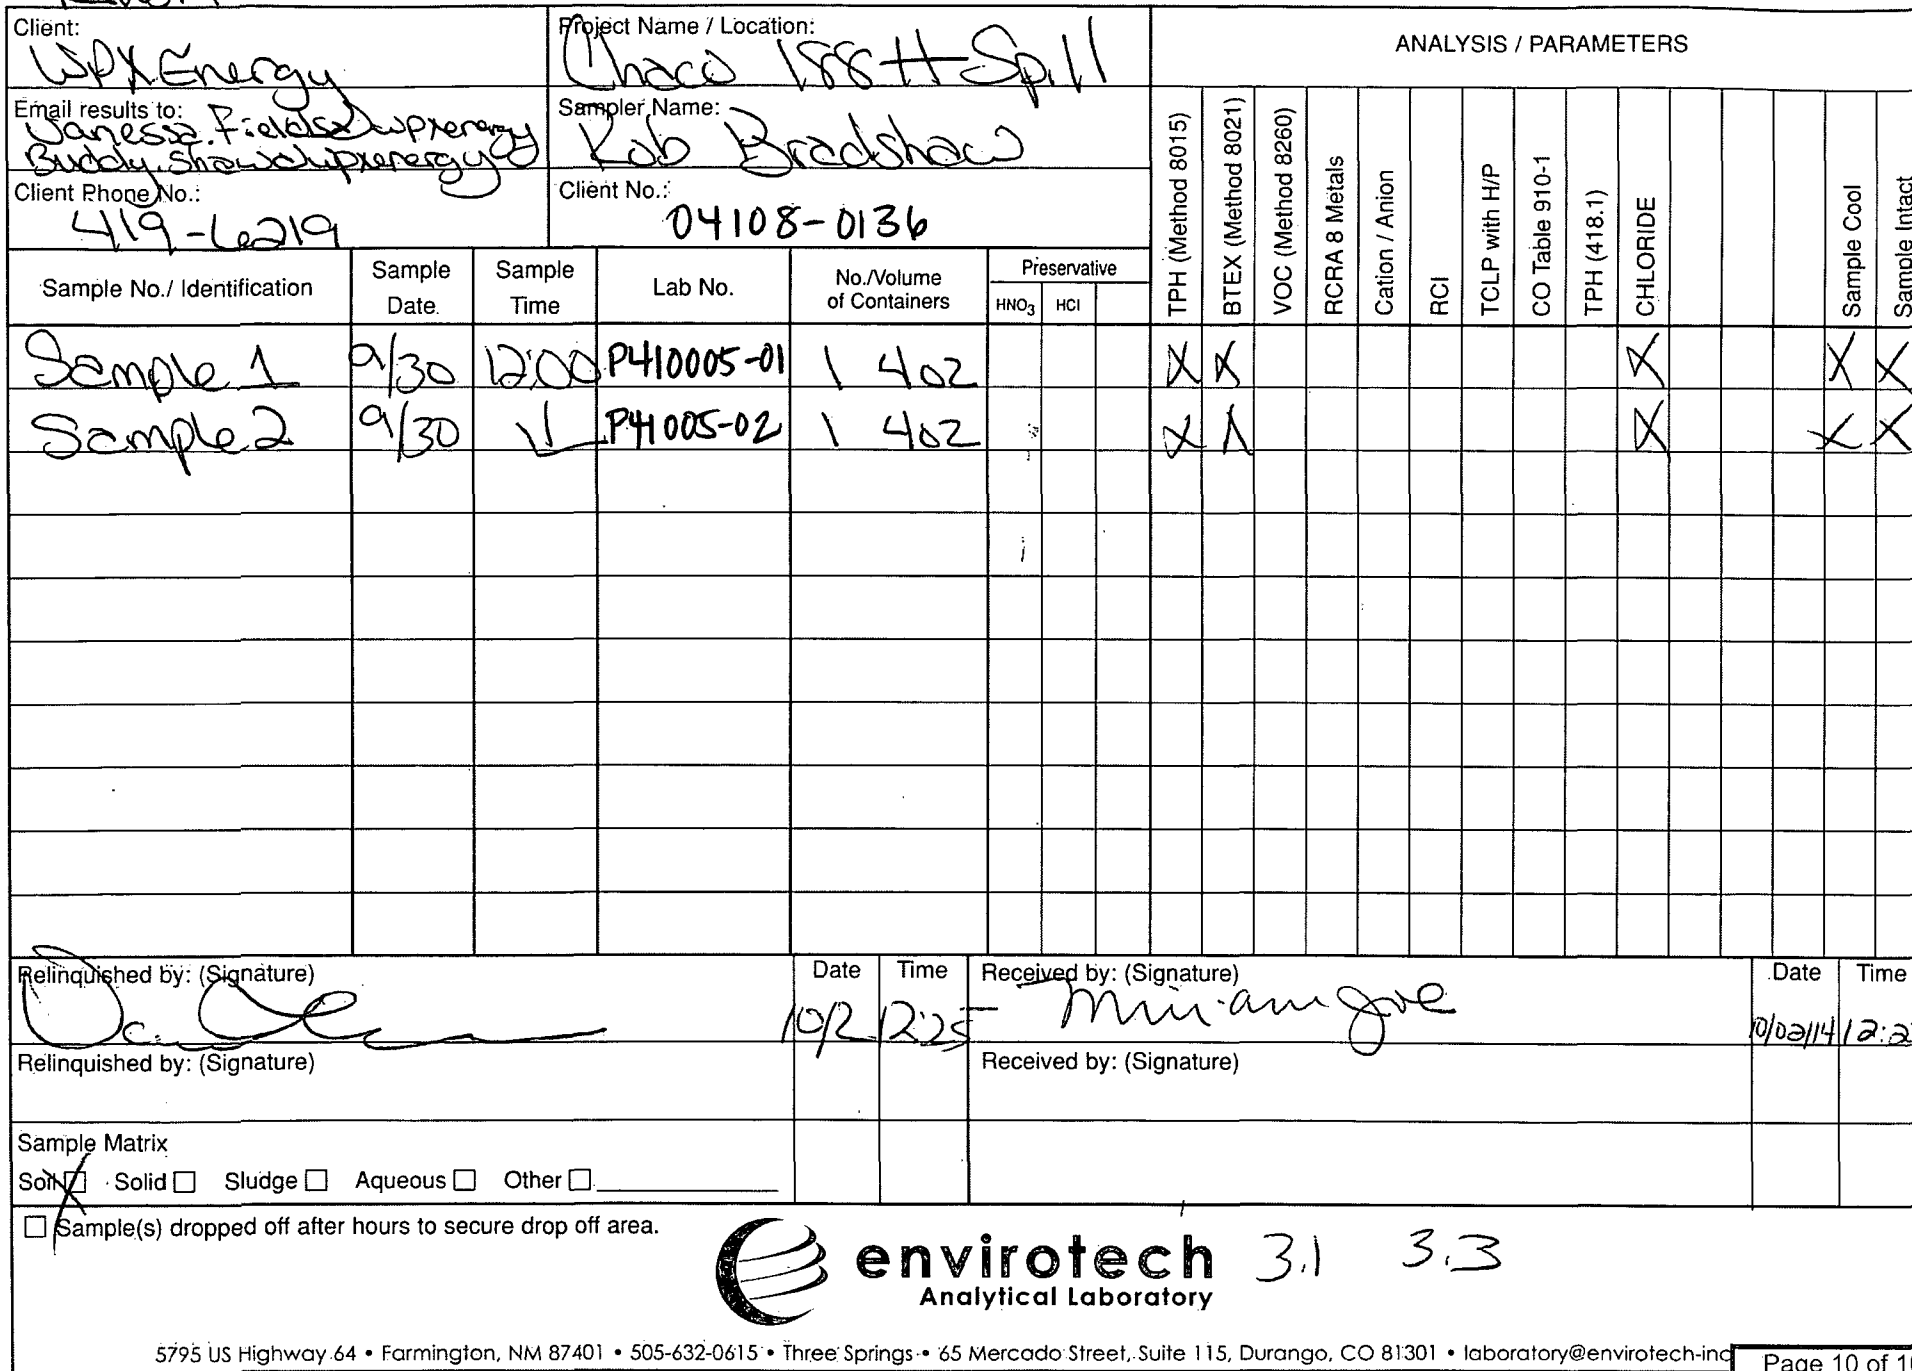 Client:
WPX Energy
Project Name / Location:
Chaco 188H Spill
ANALYSIS / PARAMETERS
Email results to:
Vanessa.Fields@wpxenergy
Buddy.Shaw@wpxenergy
Sampler Name:
Rob Bradshaw
Client Phone No.:
419-6219
Client No.:
04108-0136
Sample No./ Identification
Sample Date.
Sample Time
Lab No.
No./Volume of Containers
Preservative
HNO3 HCl
TPH (Method 8015)
BTEX (Method 8021)
VOC (Method 8260)
RCRA 8 Metals
Cation / Anion
RCI
TCLP with H/P
CO Table 910-1
TPH (418.1)
CHLORIDE
Sample Cool
Sample Intact
Sample 1 9/30 12:00 P410005-01 1 4oz X X X X X
Sample 2 9/30 P41005-02 1 4oz X X X X X
Relinquished by: (Signature) Date Time Received by: (Signature) Date Time
10/2 1225 Miriam Joe 10/02/14 12:2
Relinquished by: (Signature) Received by: (Signature)
Sample Matrix
Soil X Solid Sludge Aqueous Other
Sample(s) dropped off after hours to secure drop off area.
envirotech
Analytical Laboratory
3.1 3.3
5795 US Highway 64 • Farmington, NM 87401 • 505-632-0615 • Three Springs • 65 Mercado Street, Suite 115, Durango, CO 81301 • laboratory@envirotech-inc
Page 10 of 1